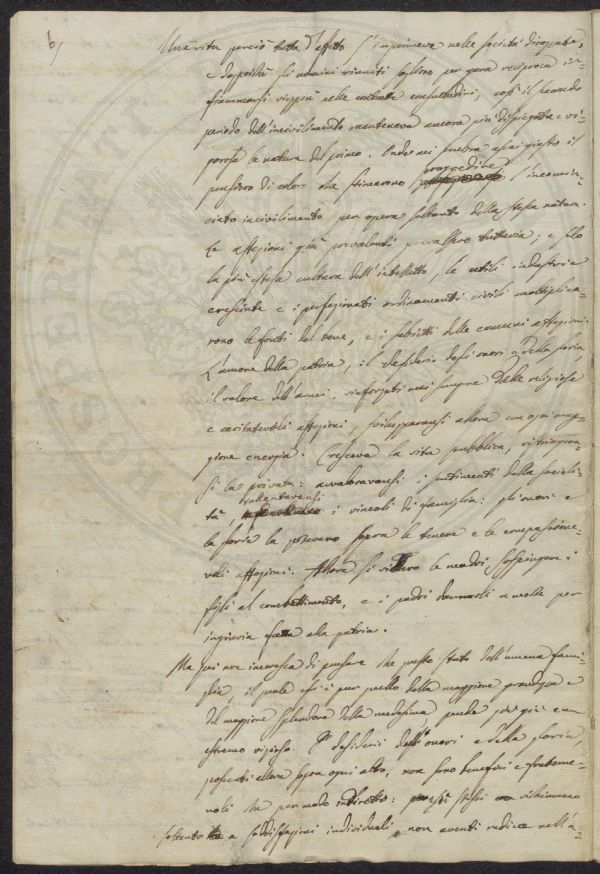 6)
Una vita perciò tutta d'affetto s'imprimeva nelle società dirozzate,
e dappoichè gli uomini riuniti sogliono per gara reciproca in-
fiammarsi vieppiù nelle contratte consuetudini, così il secondo
periodo dell'incivilimento manteneva ancora più dispiegata e vi-
gorosa la natura del primo. Onde mi sembra assai giusto il
progredire
pensiero di coloro che stimarono l'incomin-
ciato incivilimento per opera soltanto della stessa natura.
Le affezioni già prevalenti prevalsero tuttavia; e solo
la più estesa cultura dell'intelletto, le utili industrie
cresciute e i perfezionati ordinamenti civili moltiplica-
rono le fonti del bene, e i subietti delle comuni affezioni.
L'amore della patria, il desiderio degli onori e della gloria,
il valore dell'armi, rinforzati mai sempre dalle religiose
e caritatevoli affezioni, svilupparonsi allora con ogni mag-
giore energia. Cresceva la vita pubblica, ristringeva-
si la privata: avvaloravansi i sentimenti della sociali-
rallentavansi
tà, i vincoli di famiglia: gli onori e
la gloria la potevano sopra le tenere e le compassione-
voli affezioni. Allora si videro le madri sospingere i
figli al combattimento, e i padri dannarli a morte per
ingiuria fatta alla patria.
Ma qui non incresca di pensare che questo stato dell'umana fami-
glia, il quale essi è pur quello della maggiore grandezza e
del maggiore splendore della medesima, pende poi già e un
estremo vizioso. I desiderii degli onori e della gloria,
possenti allora sopra ogni altro, non sono benefici e fraterne-
voli che per modo indiretto: essi stessi richiamano
soltanto a soddisfazioni individuali, non aventi radice nell'a-